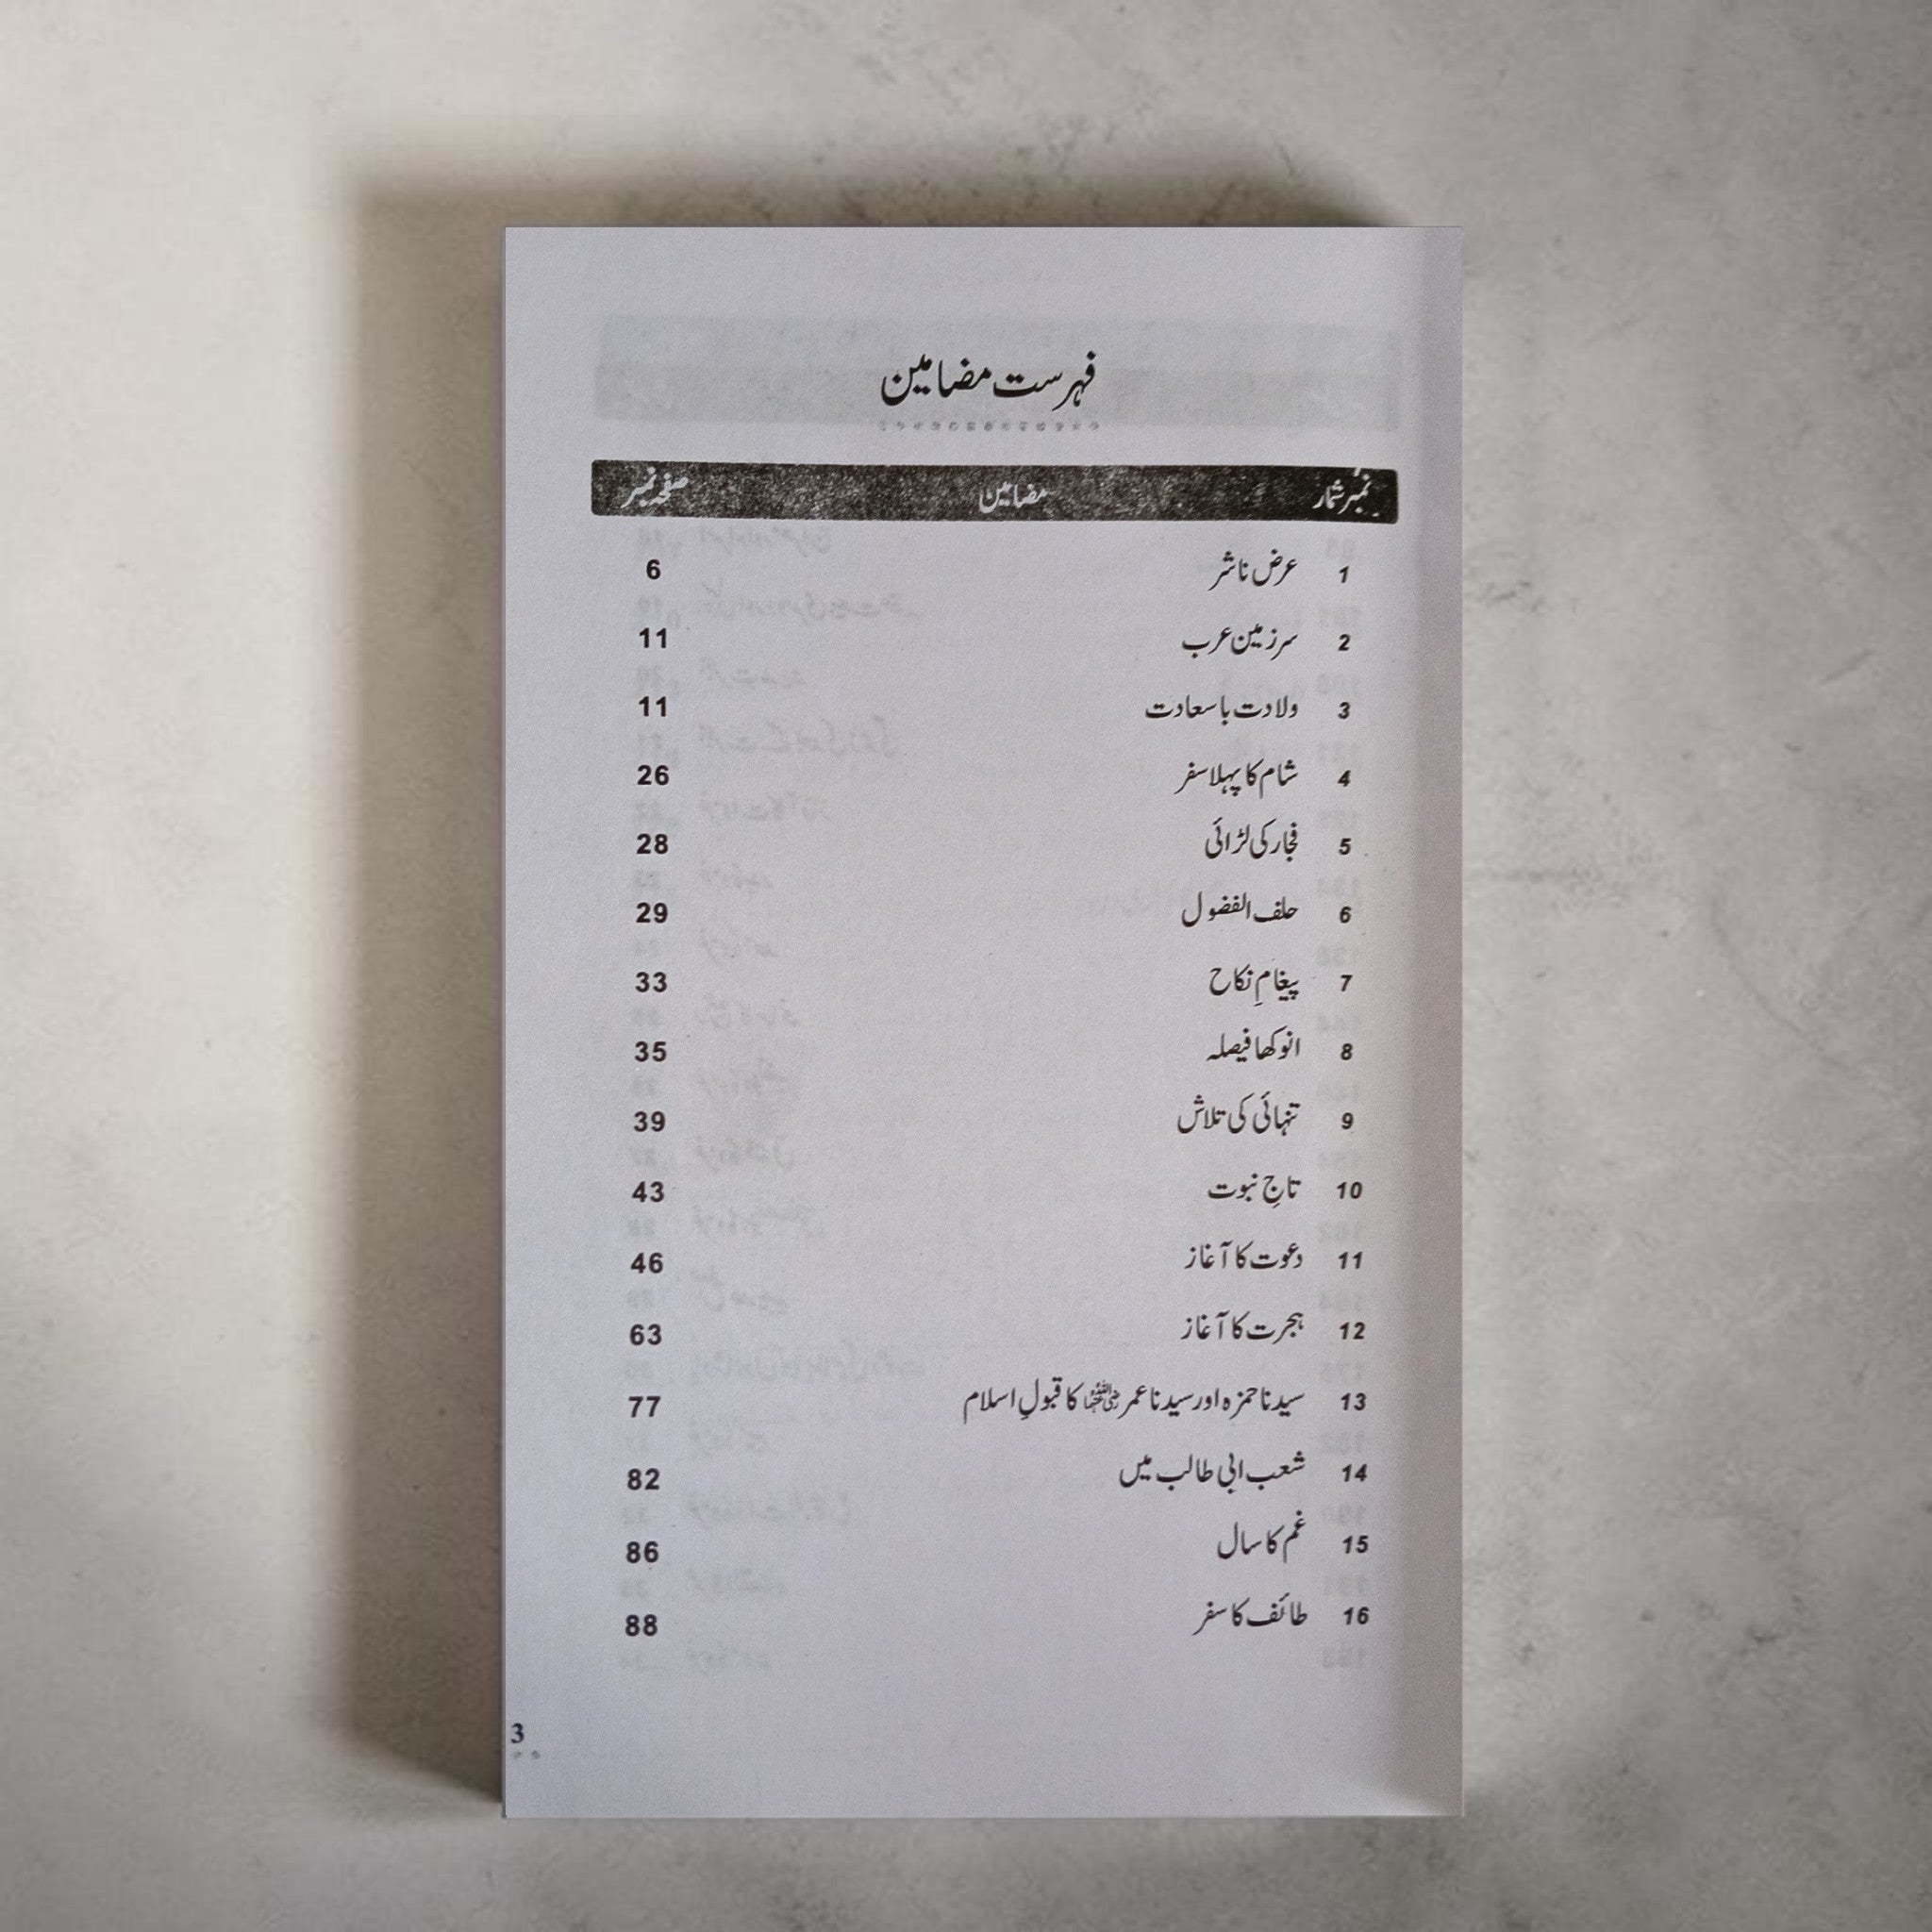 فہرست مضامین
نمبر شمار مضامین صفحہ نمبر
1 عرض ناشر 6
2 سرزمین عرب 11
3 ولادت باسعادت 11
4 شام کا پہلا سفر 26
5 فجار کی لڑائی 28
6 حلف الفضول 29
7 پیغامِ نکاح 33
8 انوکھا فیصلہ 35
9 تنہائی کی تلاش 39
10 تاجِ نبوت 43
11 دعوت کا آغاز 46
12 ہجرت کا آغاز 63
13 سیدنا حمزہ اور سیدنا عمر رضی اللہ عنہما کا قبولِ اسلام 77
14 شعب ابی طالب میں 82
15 غم کا سال 86
16 طائف کا سفر 88
3